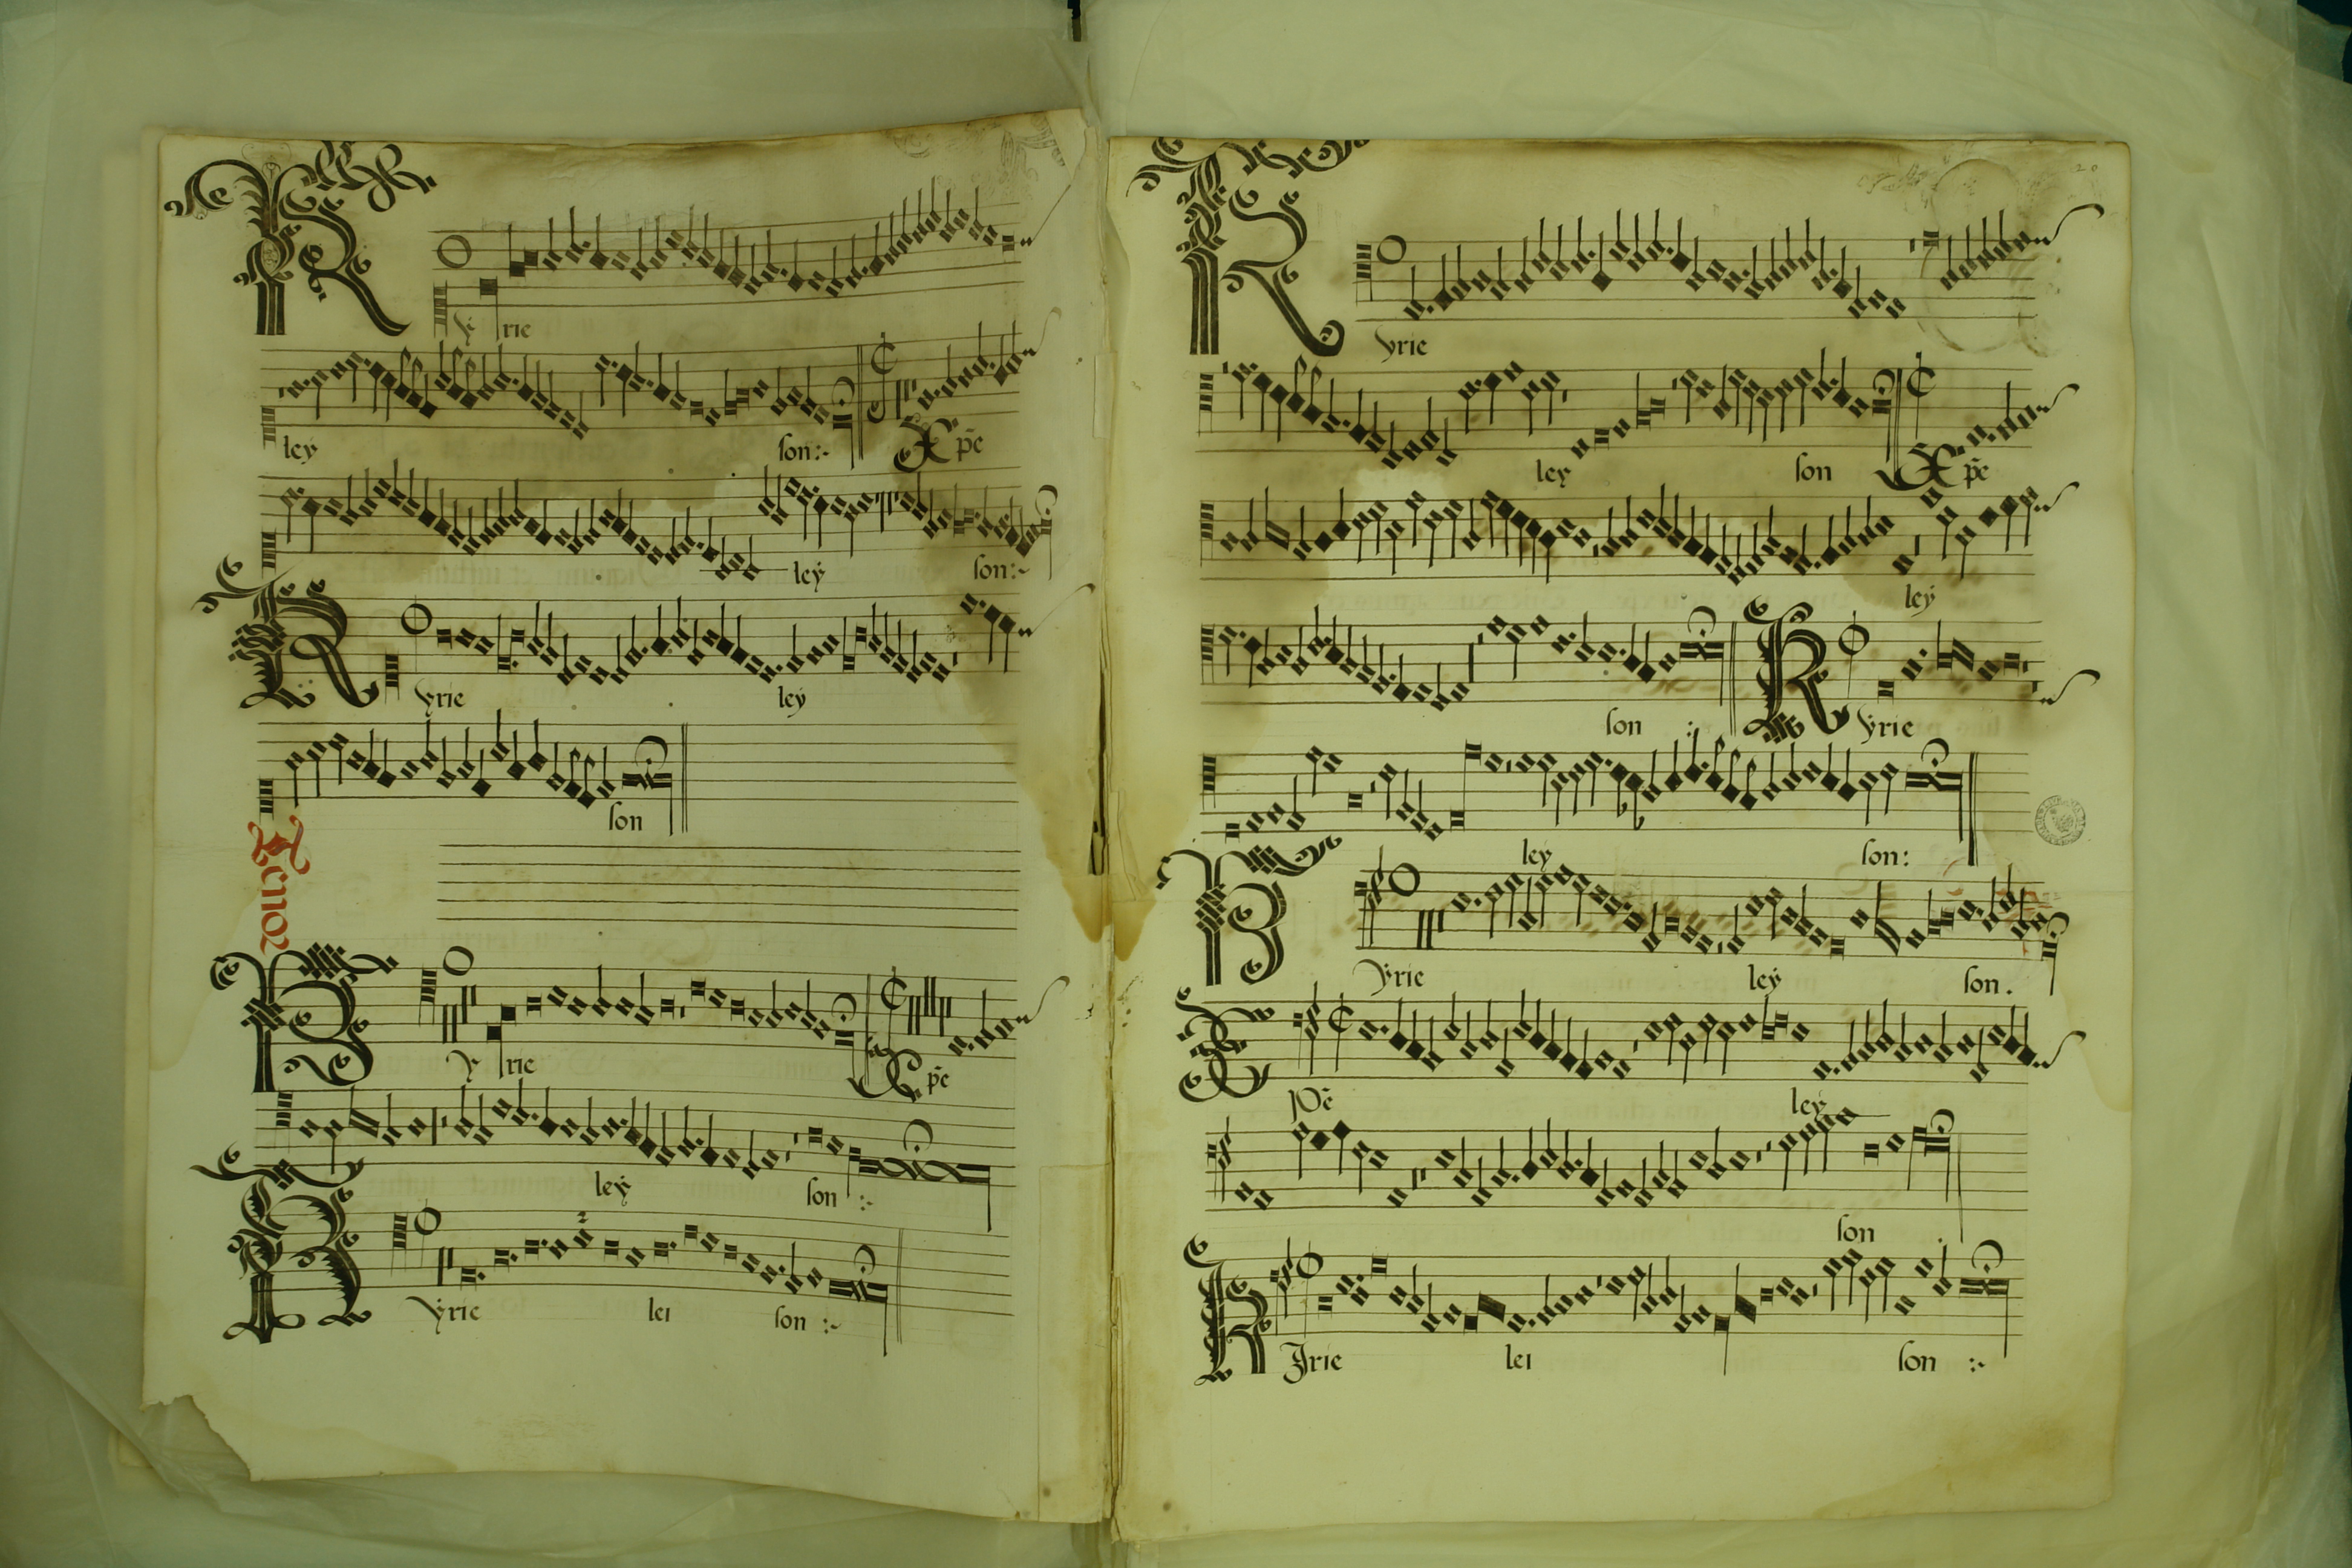 Kyrie
ley son:~ Xp̄e
ley son:~
Kyrie ley
son
Tenor
Kyrie Xp̄e
ley son :~
Kyrie lei son :~
20
Kyrie
ley son Xp̄e
ley
son : Kyrie
ley son:
Kyrie ley son.
Xp̄e ley
son .
KJrie lei son :~